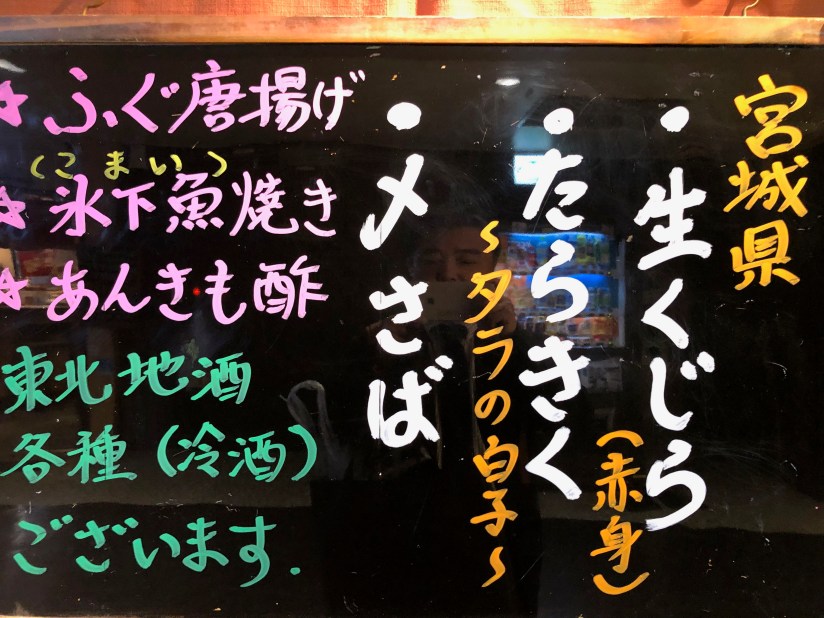 宮城県
・生くじら
(赤身)
・たらきく
～タラの白子～
・〆さば
☆ふぐ唐揚げ
(こまい)
☆氷下魚焼き
☆あんきも酢
東北地酒
各種(冷酒)
ございます.